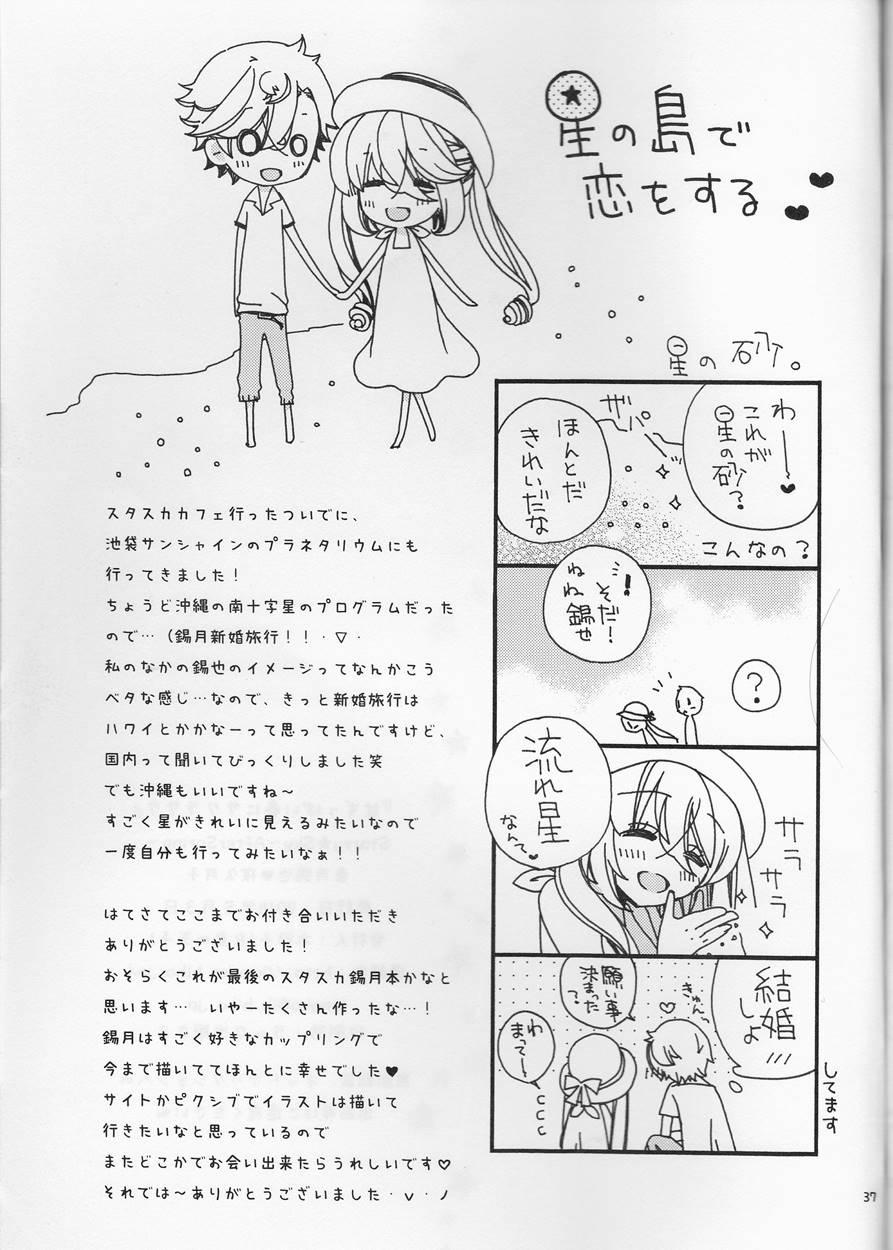 星の島で
恋をする
星の砂。
わーー♥
これが
星の砂？
ザパーンッ
ほんとだ
きれいだな
こんなの？
そだ！
ねね錫也
！
？
流れ星
なんて♥
サラサラ
結婚しよ
してます
きゅん
願い事
決まった？
わ
まってー
スタスカカフェ行ったついでに、
池袋サンシャインのプラネタリウムにも
行ってきました！
ちょうど沖縄の南十字星のプログラムだった
ので…（錫月新婚旅行！！・▽・
私のなかの錫也のイメージってなんかこう
ベタな感じ…なので、きっと新婚旅行は
ハワイとかかなーって思ってたんですけど、
国内って聞いてびっくりしました笑
でも沖縄もいいですね～
すごく星がきれいに見えるみたいなので
一度自分も行ってみたいなぁ！！
はてさてここまでお付き合いいただき
ありがとうございました！
おそらくこれが最後のスタスカ錫月本かなと
思います… いやーたくさん作ったな…！
錫月はすごく好きなカップリングで
今まで描いててほんとに幸せでした♥
サイトかピクシブでイラストは描いて
行きたいなと思っているので
またどこかでお会い出来たらうれしいです♡
それでは～ありがとうございました・ｖ・ノ
37